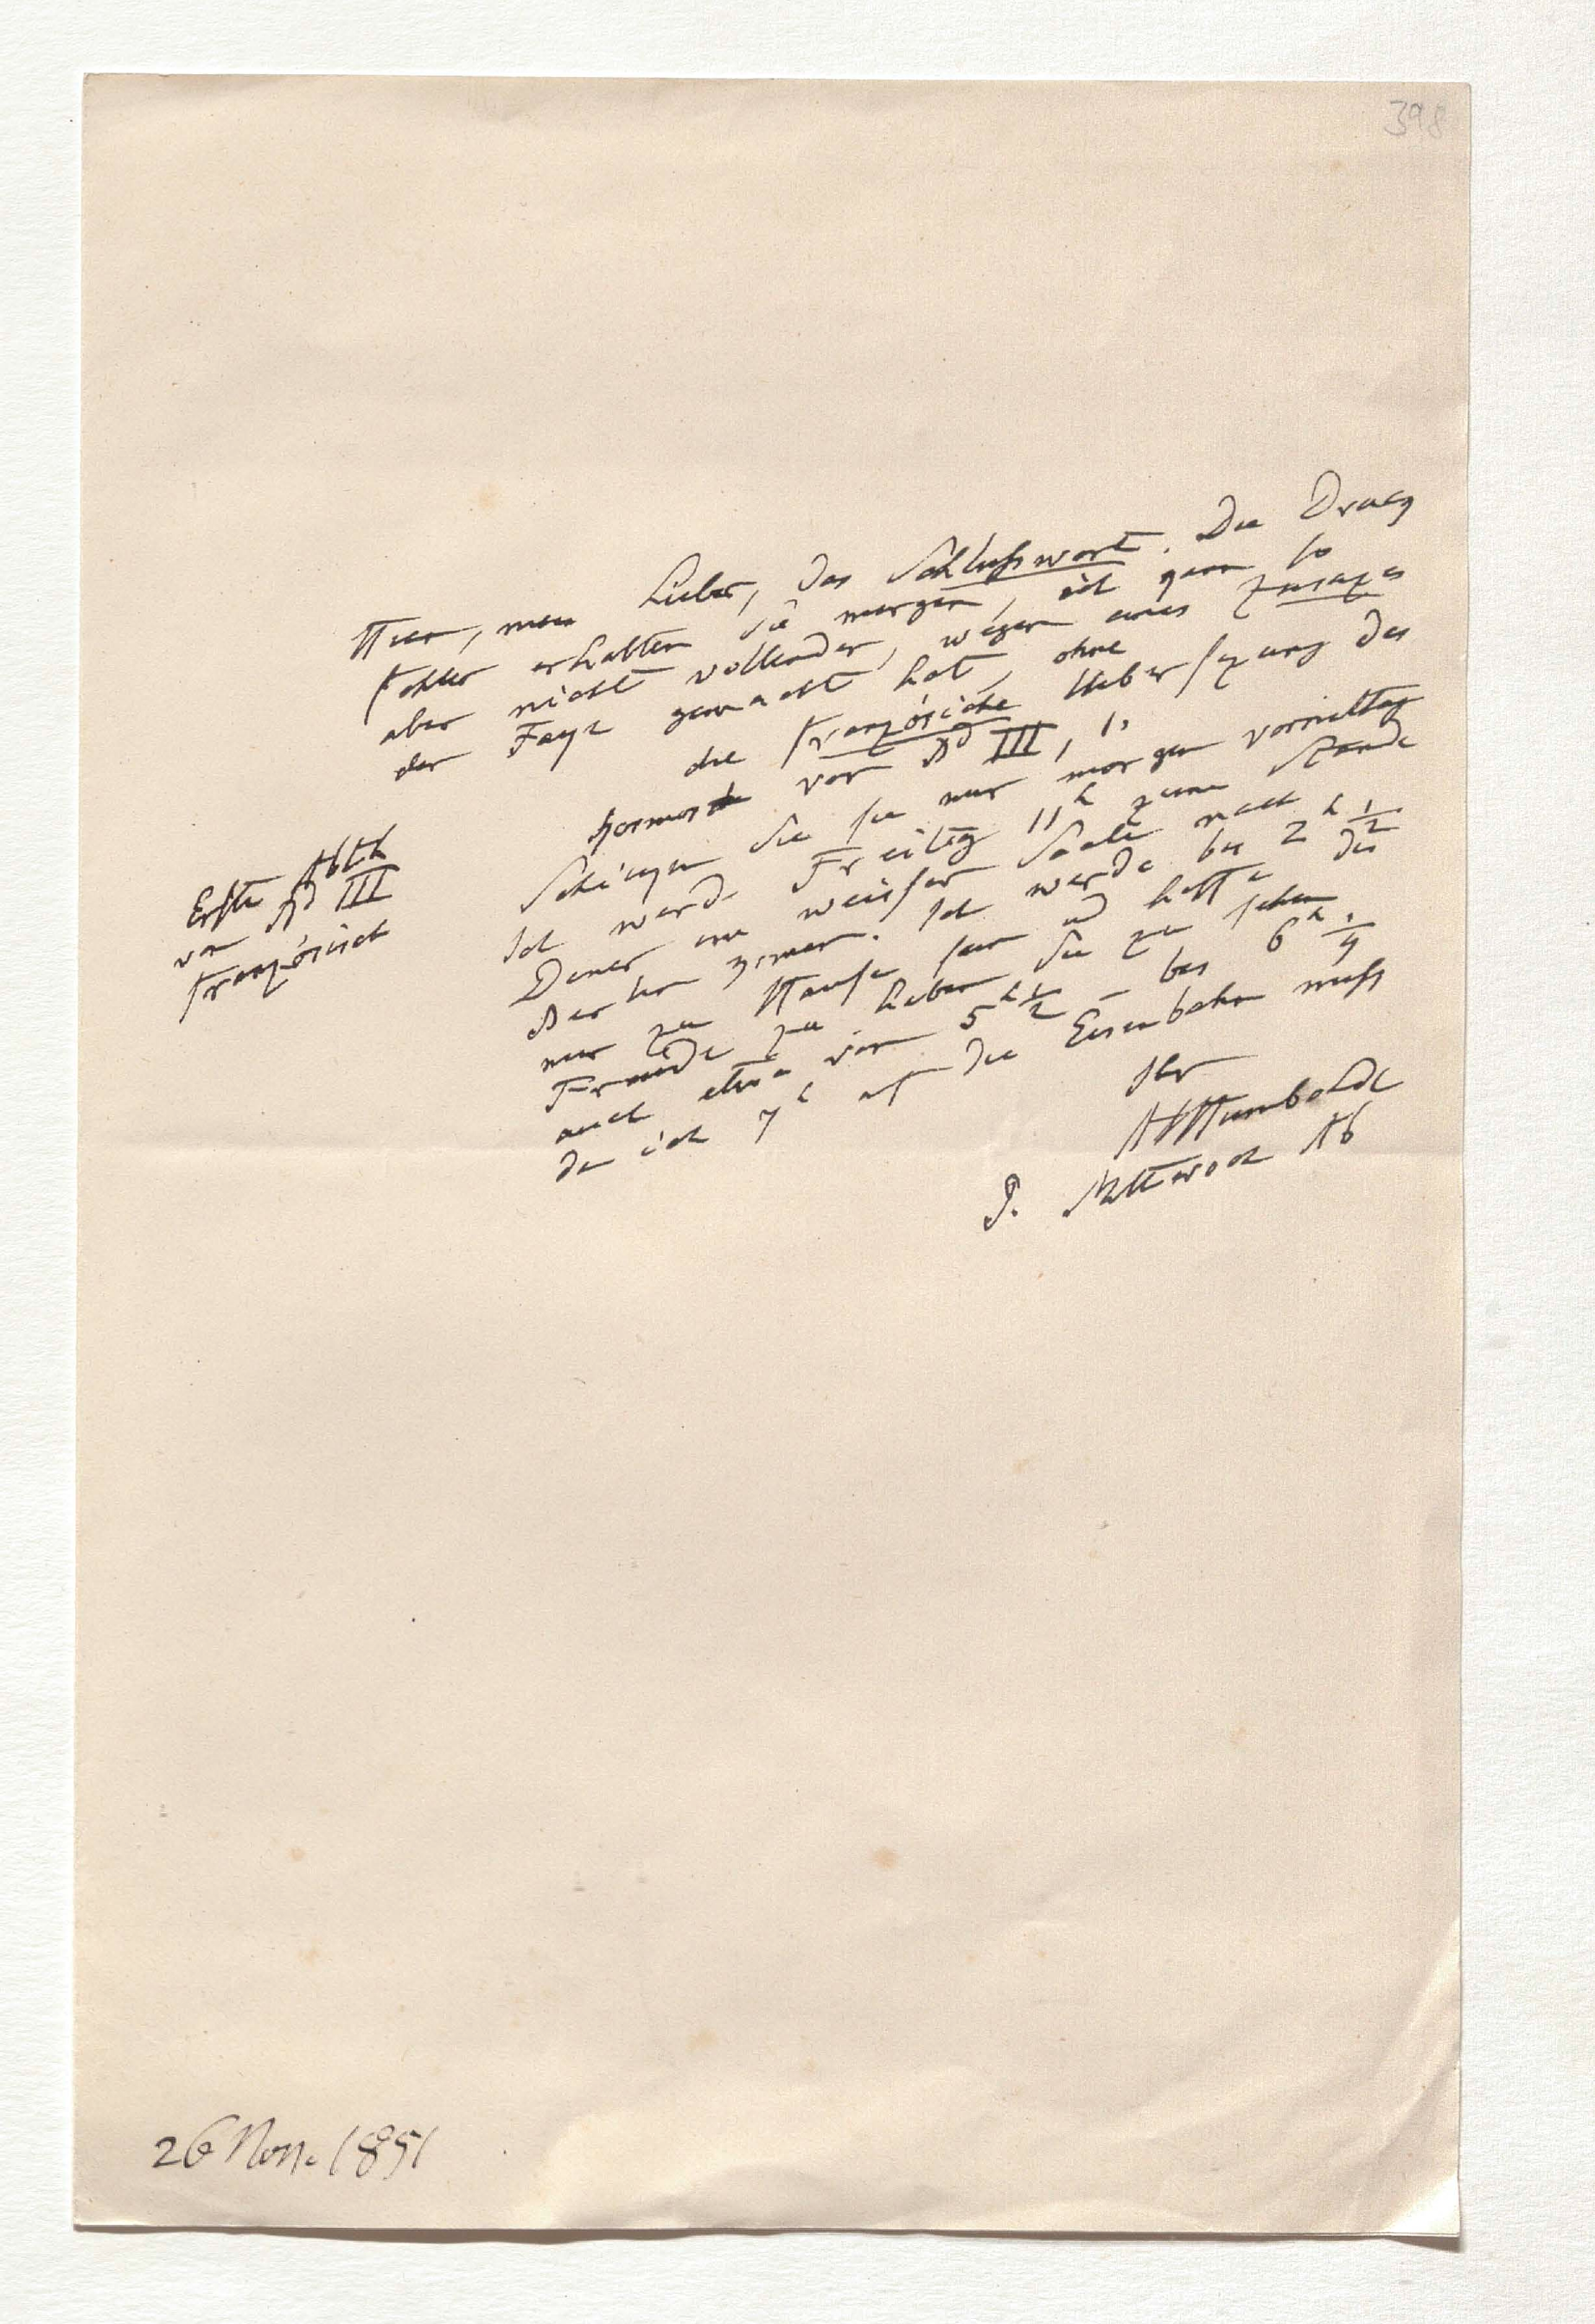 398
Hier, mein Lieber, das Schlußwort. Die Druck
fehler erhalten Sie morgen, ich gern so
aber nicht vollendet, wegen eines Zusazes
der Faye gemacht hat, ohne
die französische Uebersezung des
Kosmos von Bd III, 1,
Schicken Sie sie mir morgen vormittag
Ich werde Freitag 11h zum
Diner im weißen Saale nach
Berlin kommen. Ich werde bis 2h 1/2
nur zu Hause sein u hoffe die
Freude zu haben Sie zu sehen
auch etwa von 5h 1/2 – bis 6h 1/4
da ich 7h auf die Eisenbahn muß
Ihr
AvHumboldt
P. Mittwoch Ab
Erste Abth
von Bd III
französisch
26 Nov. 1851